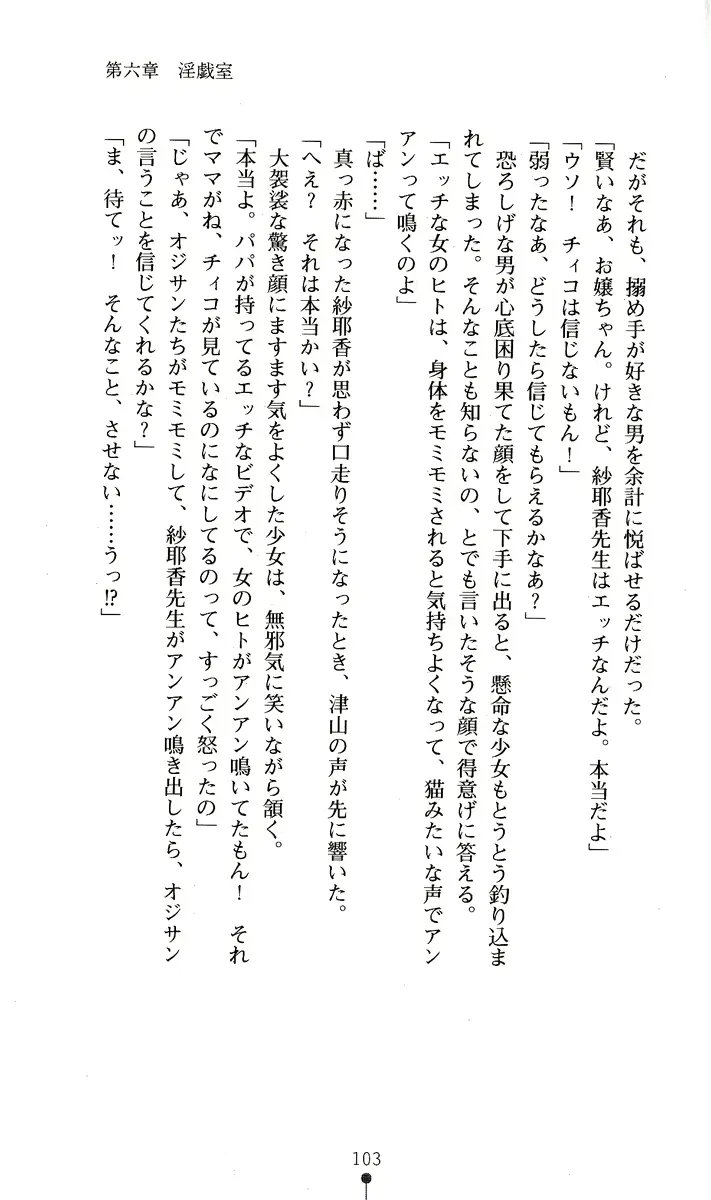 第六章　淫戯室
だがそれも、搦め手が好きな男を余計に悦ばせるだけだった。
「賢いなぁ、お嬢ちゃん。けれど、紗耶香先生はエッチなんだよ。本当だよ」
「ウソ！　チィコは信じないもん！」
「弱ったなあ、どうしたら信じてもらえるかなあ？」
恐ろしげな男が心底困り果てた顔をして下手に出ると、懸命な少女もとうとう釣り込ま
れてしまった。そんなことも知らないの、とでも言いたそうな顔で得意げに答える。
「エッチな女のヒトは、身体をモミモミされると気持ちよくなって、猫みたいな声でアン
アンって鳴くのよ」
「ば……」
真っ赤になった紗耶香が思わず口走りそうになったとき、津山の声が先に響いた。
「へえ？　それは本当かい？」
大袈裟な驚き顔にますます気をよくした少女は、無邪気に笑いながら頷く。
「本当よ。パパが持ってるエッチなビデオで、女のヒトがアンアン鳴いてたもん！　それ
でママがね、チィコが見ているのになにしてるのって、すっごく怒ったの」
「じゃあ、オジサンたちがモミモミして、紗耶香先生がアンアン鳴き出したら、オジサン
の言うことを信じてくれるかな？」
「ま、待てッ！　そんなこと、させない……うっ!?」
103